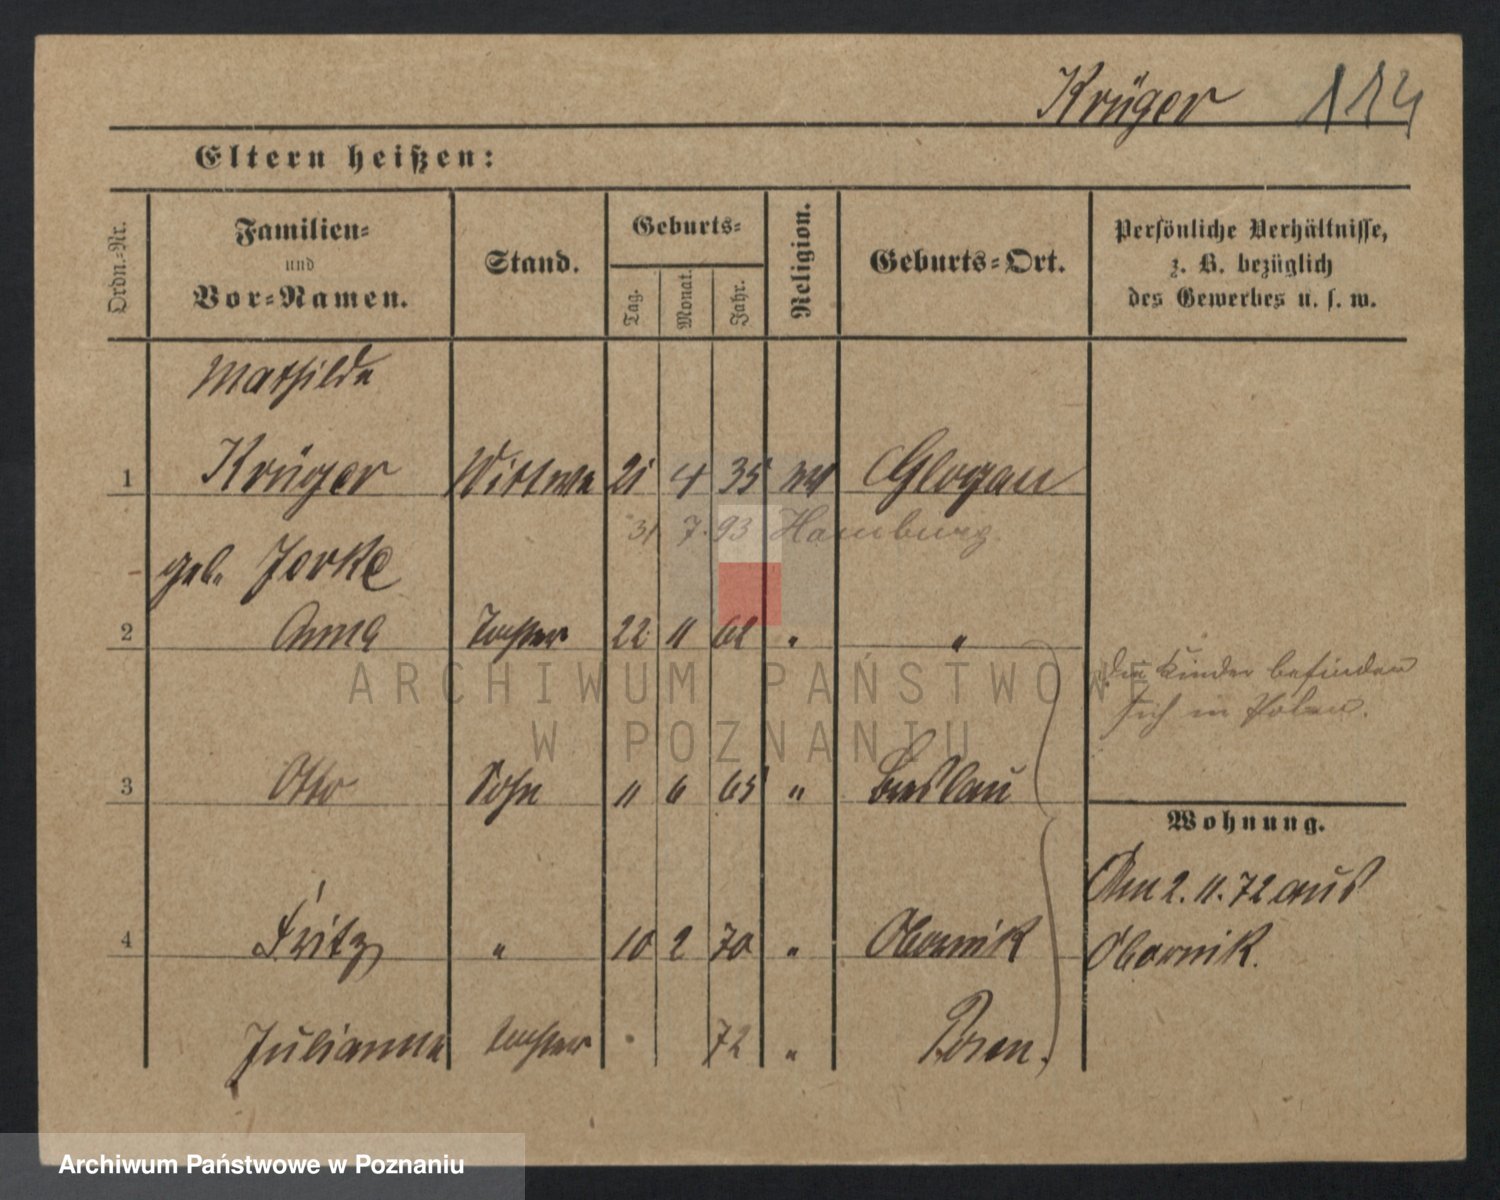 Krüger 114
Eltern heißen:
Ordn.-Nr.
Familien-
und
Vor-Namen.
Stand.
Geburts-
Tag.
Monat.
Jahr.
Religion.
Geburts-Ort.
Persönliche Verhältnisse,
z. B. bezüglich
des Gewerbes u. s. w.
Mathilde
1 Krüger Wittwe 21 4 35 Glogau
31 7. 93 Hamburg
geb. Jerke
2 Anna Tochter 22 11 " "
ARCHIWUM PAŃSTWOWE
W POZNANIU
Die Kinder befinden
sich in Polen.
3 Otto Sohn 11 6 65 " Breslau
Wohnung.
Am 2. 11. 72 aus
Obornik.
4 Fritz " 10 2 70 " Obornik
Julianna Tochter 72 " Posen.
Archiwum Państwowe w Poznaniu